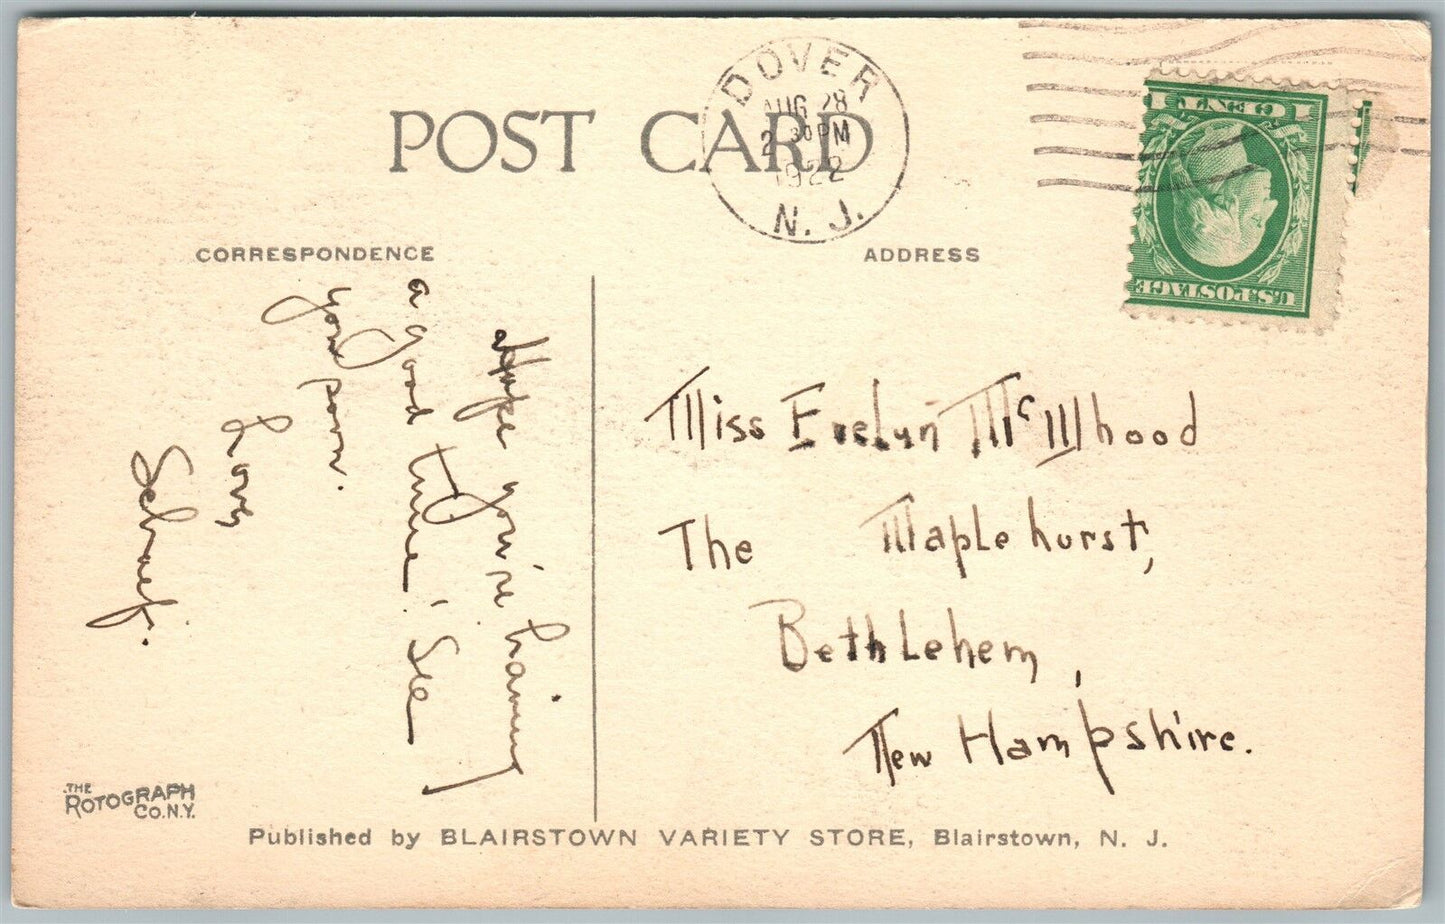 POST CARD
DOVER
AUG 28
2 30 PM
1922
N. J.
1 CENT 1
U.S. POSTAGE
CORRESPONDENCE
ADDRESS
Hope you're having
a good time! See
you soon.
Love
Miss Evelyn McWhood
The Maplehurst,
Bethlehem,
New Hampshire.
THE
ROTOGRAPH
CO. N.Y.
Published by BLAIRSTOWN VARIETY STORE, Blairstown, N. J.